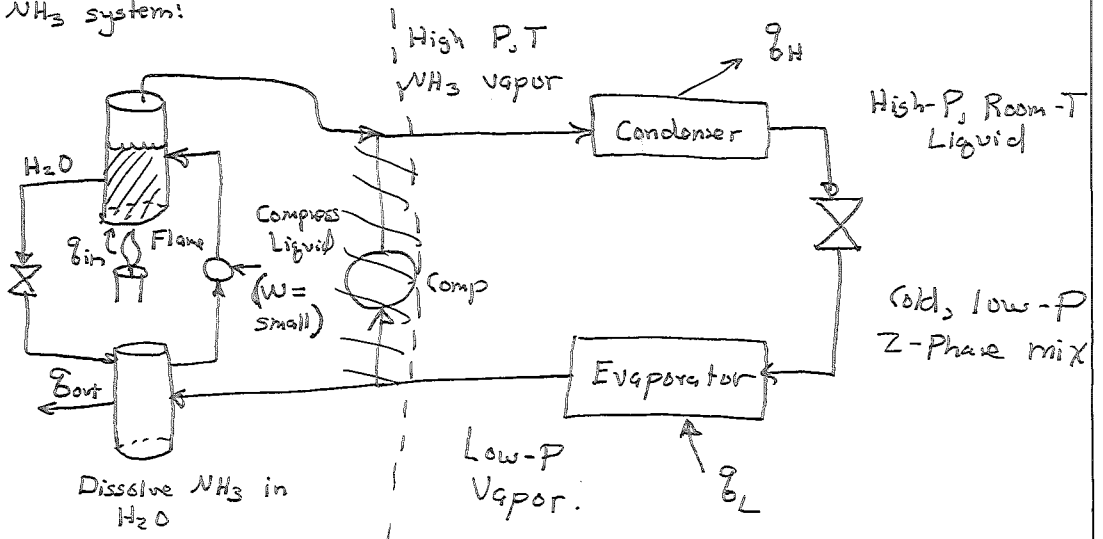 NH3 system:
High P, T
NH3 vapor
qH
Condenser
High-P, Room-T
Liquid
H2O
qin
Flame
Compress
Liquid
(W=
small)
Comp
Cold, low-P
2-Phase mix
Evaporator
qout
Low-P
Vapor.
qL
Dissolve NH3 in
H2O